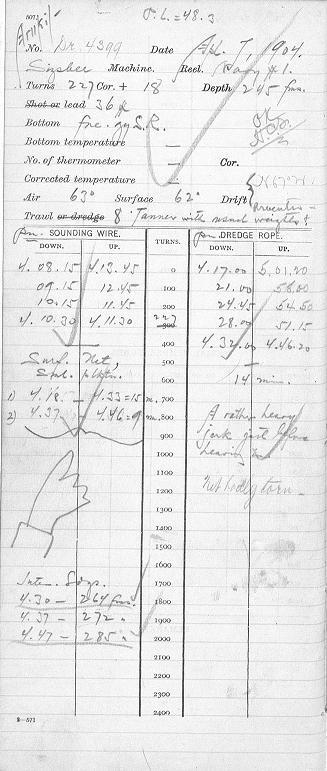 April
O.L. = 48.3
No. Dr. 4399 Date Apl. 7, 1904.
Sigsbee Machine. Reel. Rope #1.
Turns 227 Cor. + 18 Depth 245 fms.
Shot or lead 36 #
Bottom fne. gy. S. R.
Bottom temperature —
No. of thermometer — Cor.
Corrected temperature —
Air 63° Surface 62° Drift
Trawl or dredge 8' Tanner with usual weights &
pm SOUNDING WIRE. TURNS. pm DREDGE ROPE.
DOWN. UP. DOWN. UP.
4. 08. 15 4. 13. 45 0 4. 17. 00 5. 01. 20
09. 15 12. 45 100 21. 00 58. 00
10. 15 11. 45 200 24. 45 54. 50
4. 10. 30 4. 11. 30 227 300 28. 00 51. 15
400 4. 32. 00 4. 46. 20
Surf. Net, 500
600 14 min.
1) 4. 18. — 4. 33 = 15 m. 700
2) 4. 37. — 4. 46 = 9 m. 800 A rather heavy
900 jerk just before
1000 leaving
1100
1200 Net badly torn —
1300
1400
1500
1600
Inter. Sdgs. 1700
4. 30 — 264 fms. 1800
4. 37 — 272 " 1900
4. 47 — 285 " 2000
2100
2200
2300
2—571 2400